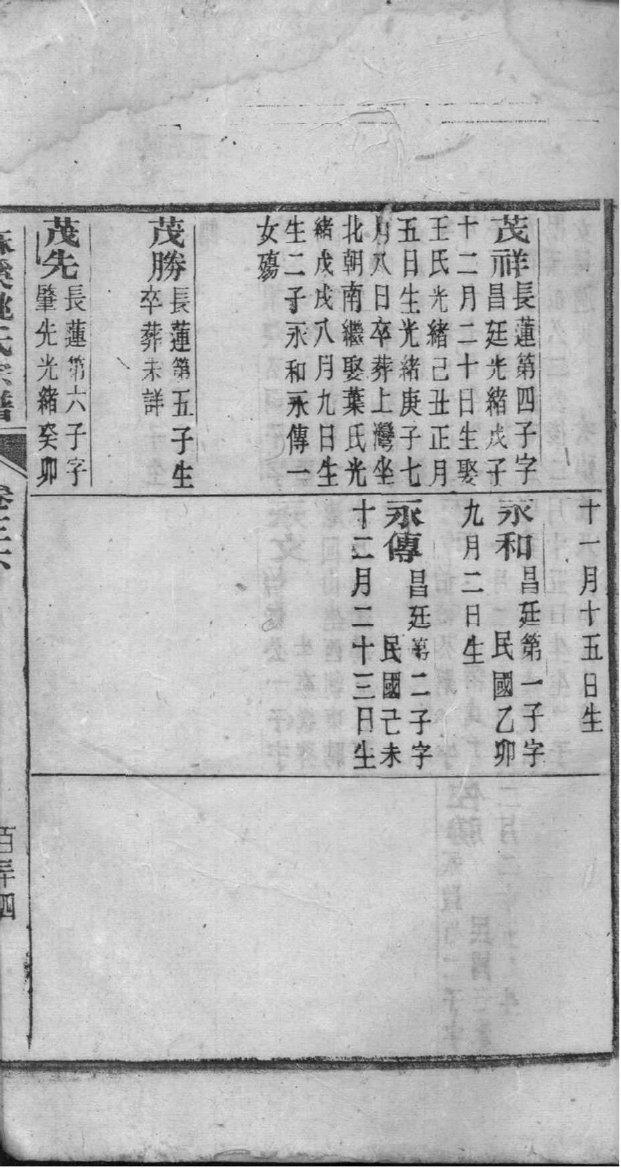 茂祥長蓮第四子字
昌廷光緒戊子
十二月二十日生娶
王氏光緒己丑正月
五日生光緒庚子七
月八日卒葬上灣坐
北朝南繼娶葉氏光
緒戊戌八月九日生
生二子永和永傳一
女殤
茂勝長蓮第五子生
卒葬未詳
茂先長蓮第六子字
肇先光緒癸卯
十一月十五日生
永和昌廷第一子字
民國乙卯
九月二日生
永傳昌廷第二子字
民國己未
十二月二十三日生
氏宗譜
卷三六